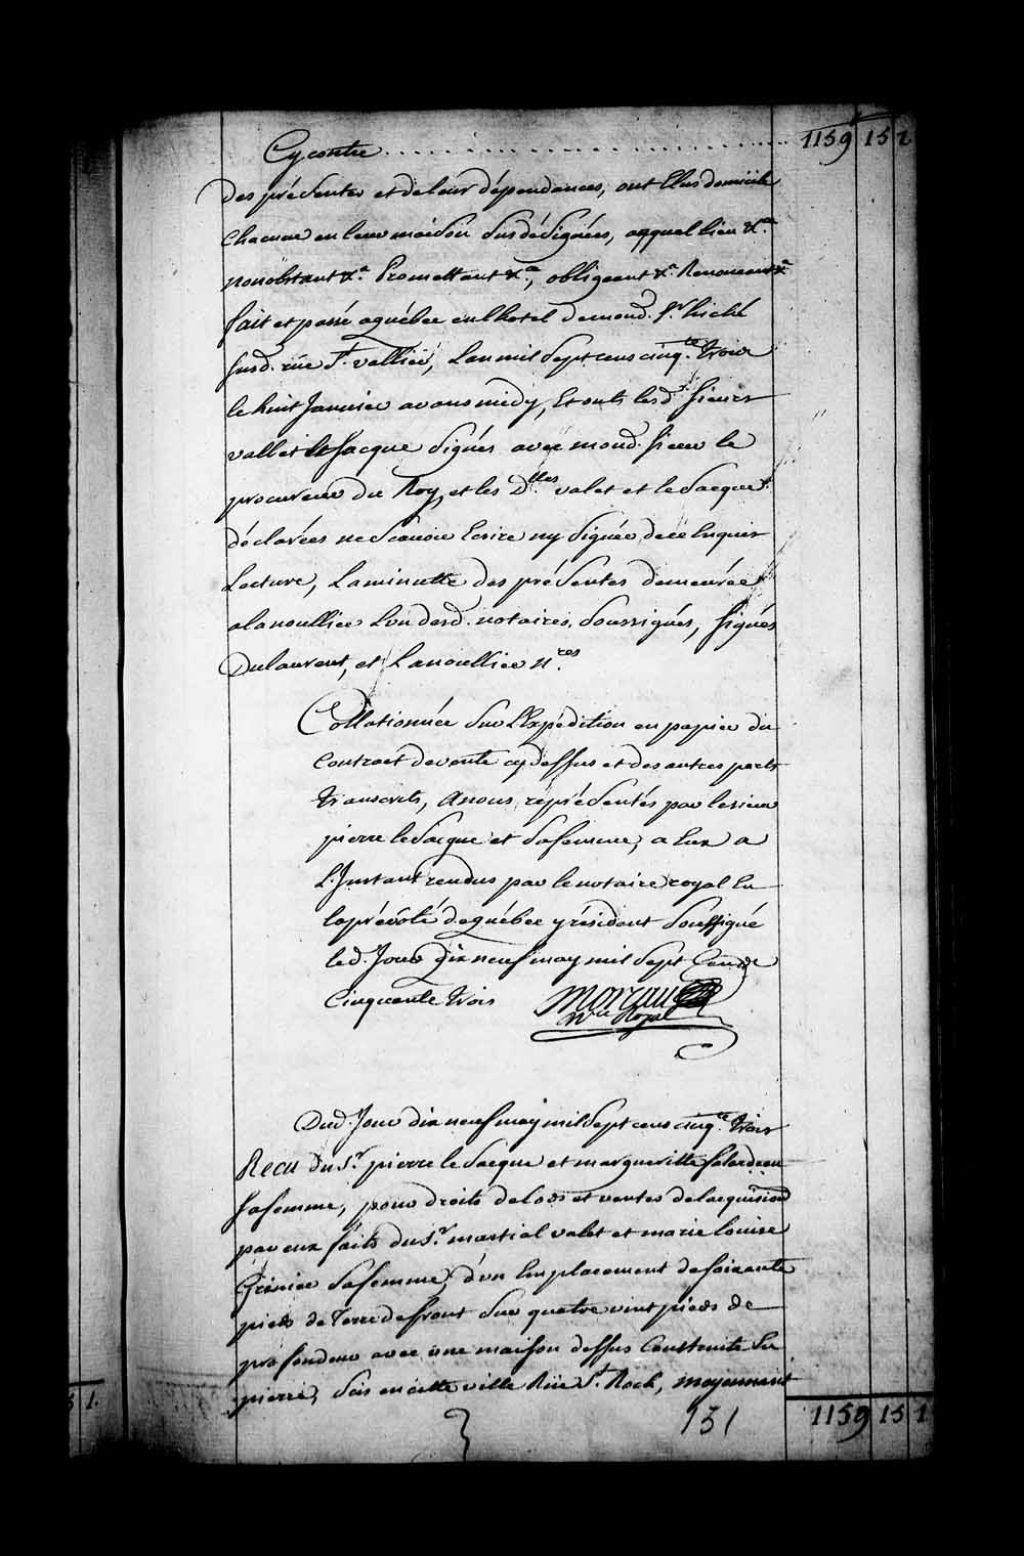 Cy contre . . . . . . . . . . . . . . . . 1159 15 1
des présentes et de leur dépendances, ont Elus domicile
chacune en leur maison susdésignées, auquel lieu &a.
nonobstant &a. Promettant &a., obligeant &a. Renonceant &a
fait et passé aquébec en lhotel de mond. Sr. hiché
susd. rüe St. vallier, Lan mil Sept cens cinqte. trois
le huit Janvier avant midy, Et onts lesd. Sieurs
vallet et leSacque Signés avec mond. Sieur le
procureur du Roy, et les Dlles. valet et le Sacque
déclarées ne Scavoir Ecrire ny Signée, de ce Enquis
Lecture, La minutte des présentes demeurée
a lanoullier L'un desd. notaires Soussignés, Signés
Dulaurent, et Lanoullier nres.
Collationnée Sur L'Expédition en papier du
Contract de vente cy dessus et des autres parts
transcrits, Anous représentés par le sieur
pierre le Sacque et Sa femme, a Eux a
L'Instant rendus par le notaire royal En
la prévôté de québec y résident Soussigné
led. Jour dix neuf may mil Sept Cent
Cinquante trois
Moreau
Nre. Royal
Dud. Jour dix neuf may mil Sept cens cinqte. trois
Recu du Sr. pierre le Sacque et margueritte
Sa femme, pour droits de Lods et ventes de lacquisition
par eux faits du Sr. martial valet et marie Louise
Grenier Sa femme, d'un Emplacement de Soixante
pieds de Terre de front Sur quatre vint pieds de
profondeur avec une maison dessus Construite En
pierre, Sis en cette ville Rüe St. Roch, moyennant
1159 15 1
131